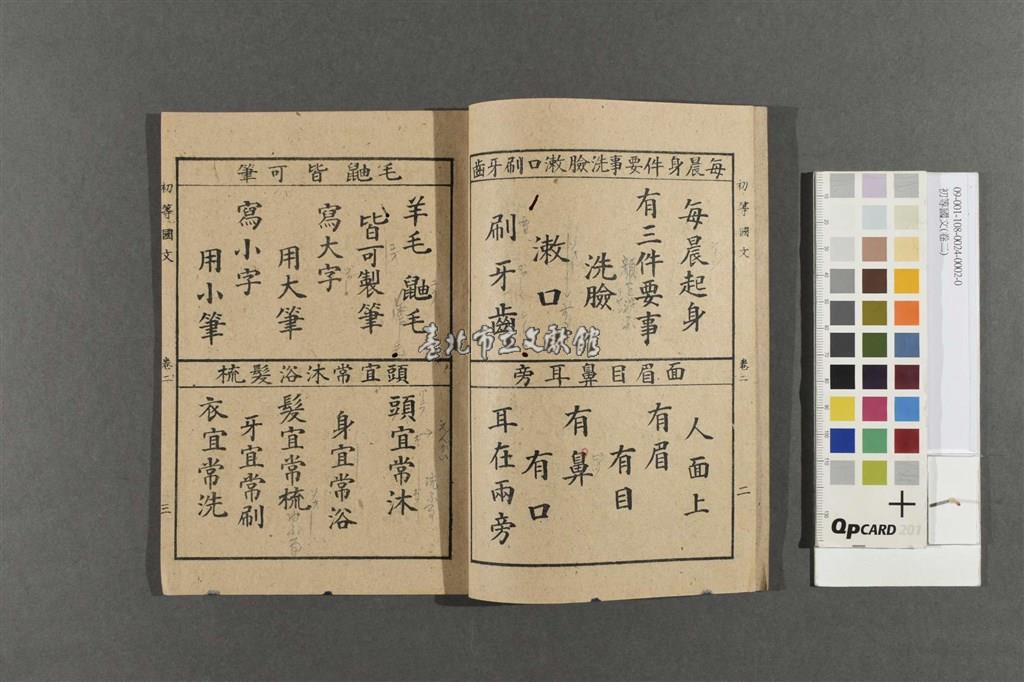 初等國文
卷二
二
每晨身件要事洗臉漱口刷牙齒
每晨起身
有三件要事
洗臉
漱口
刷牙齒
面眉目鼻耳旁
人面上
有眉
有目
有鼻
有口
耳在兩旁
毛鼬皆可筆
羊毛 鼬毛
皆可製筆
寫大字
用大筆
寫小字
用小筆
頭宜常沐浴髮梳
頭宜常沐
身宜常浴
髮宜常梳
牙宜常刷
衣宜常洗
初等國文
卷二
三
臺北市立文獻館
09-001-108-0024-0002-0
初等國文(卷二)
QPCARD 201